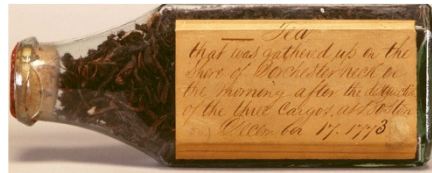 Tea
that was gathered up on the
Shore of Dorchester neck on
the morning after the destruction
of the three Cargos at Boston
December 17. 1773